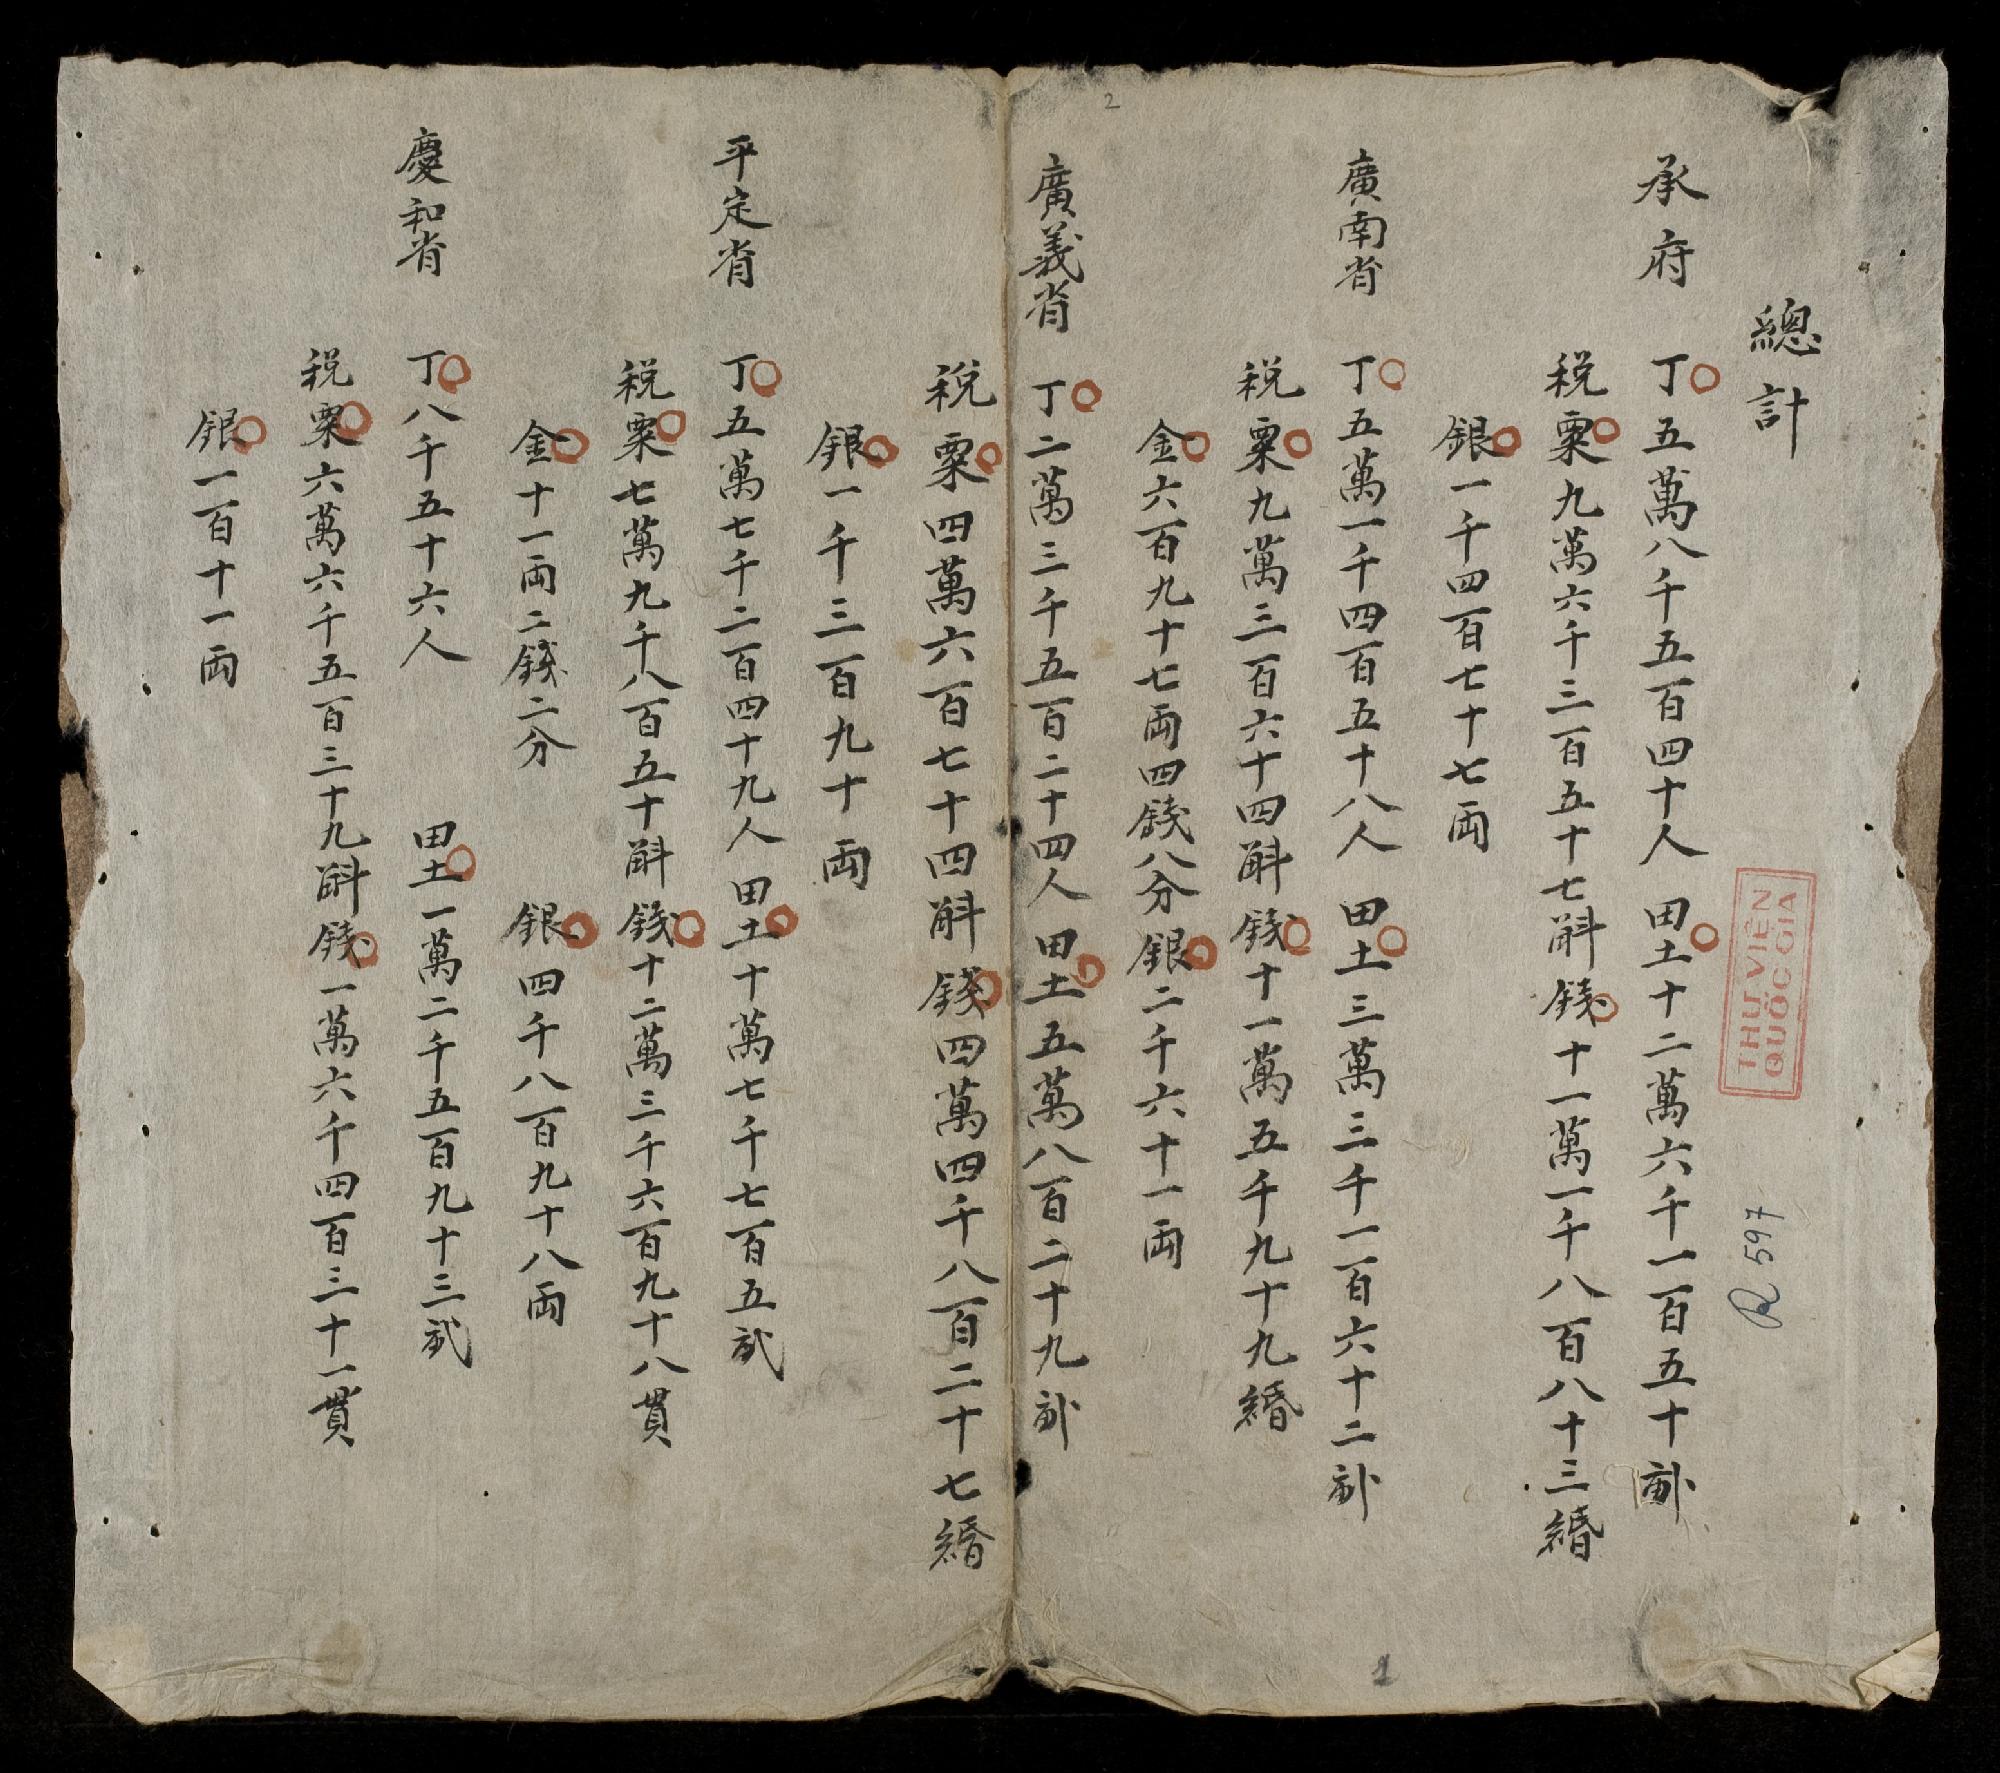 總計
承府 丁五萬八千五百四十人 田土十二萬六千一百五十畝
稅粟九萬六千三百五十七斛 錢十一萬一千八百八十三緡
銀一千四百七十七両
廣南省 丁五萬一千四百五十八人 田土三萬三千一百六十二畝
稅粟九萬三百六十四斛 錢十一萬五千九十九緡
金六百九十七両四錢八分 銀二千六十一両
廣義省 丁二萬三千五百二十四人 田土五萬八百二十九畝
稅粟四萬六百七十四斛 錢四萬四千八百二十七緡
銀一千三百九十両
平定省 丁五萬七千二百四十九人 田土十萬七千七百五畝
稅粟七萬九千八百五十斛 錢十二萬三千六百九十八貫
金十一両二錢二分 銀四千八百九十八両
慶和省 丁八千五十六人 田土一萬二千五百九十三畝
稅粟六萬六千五百三十九斛 錢一萬六千四百三十一貫
銀一百十一両
THƯ VIỆN
QUỐC GIA
R 597
2
1